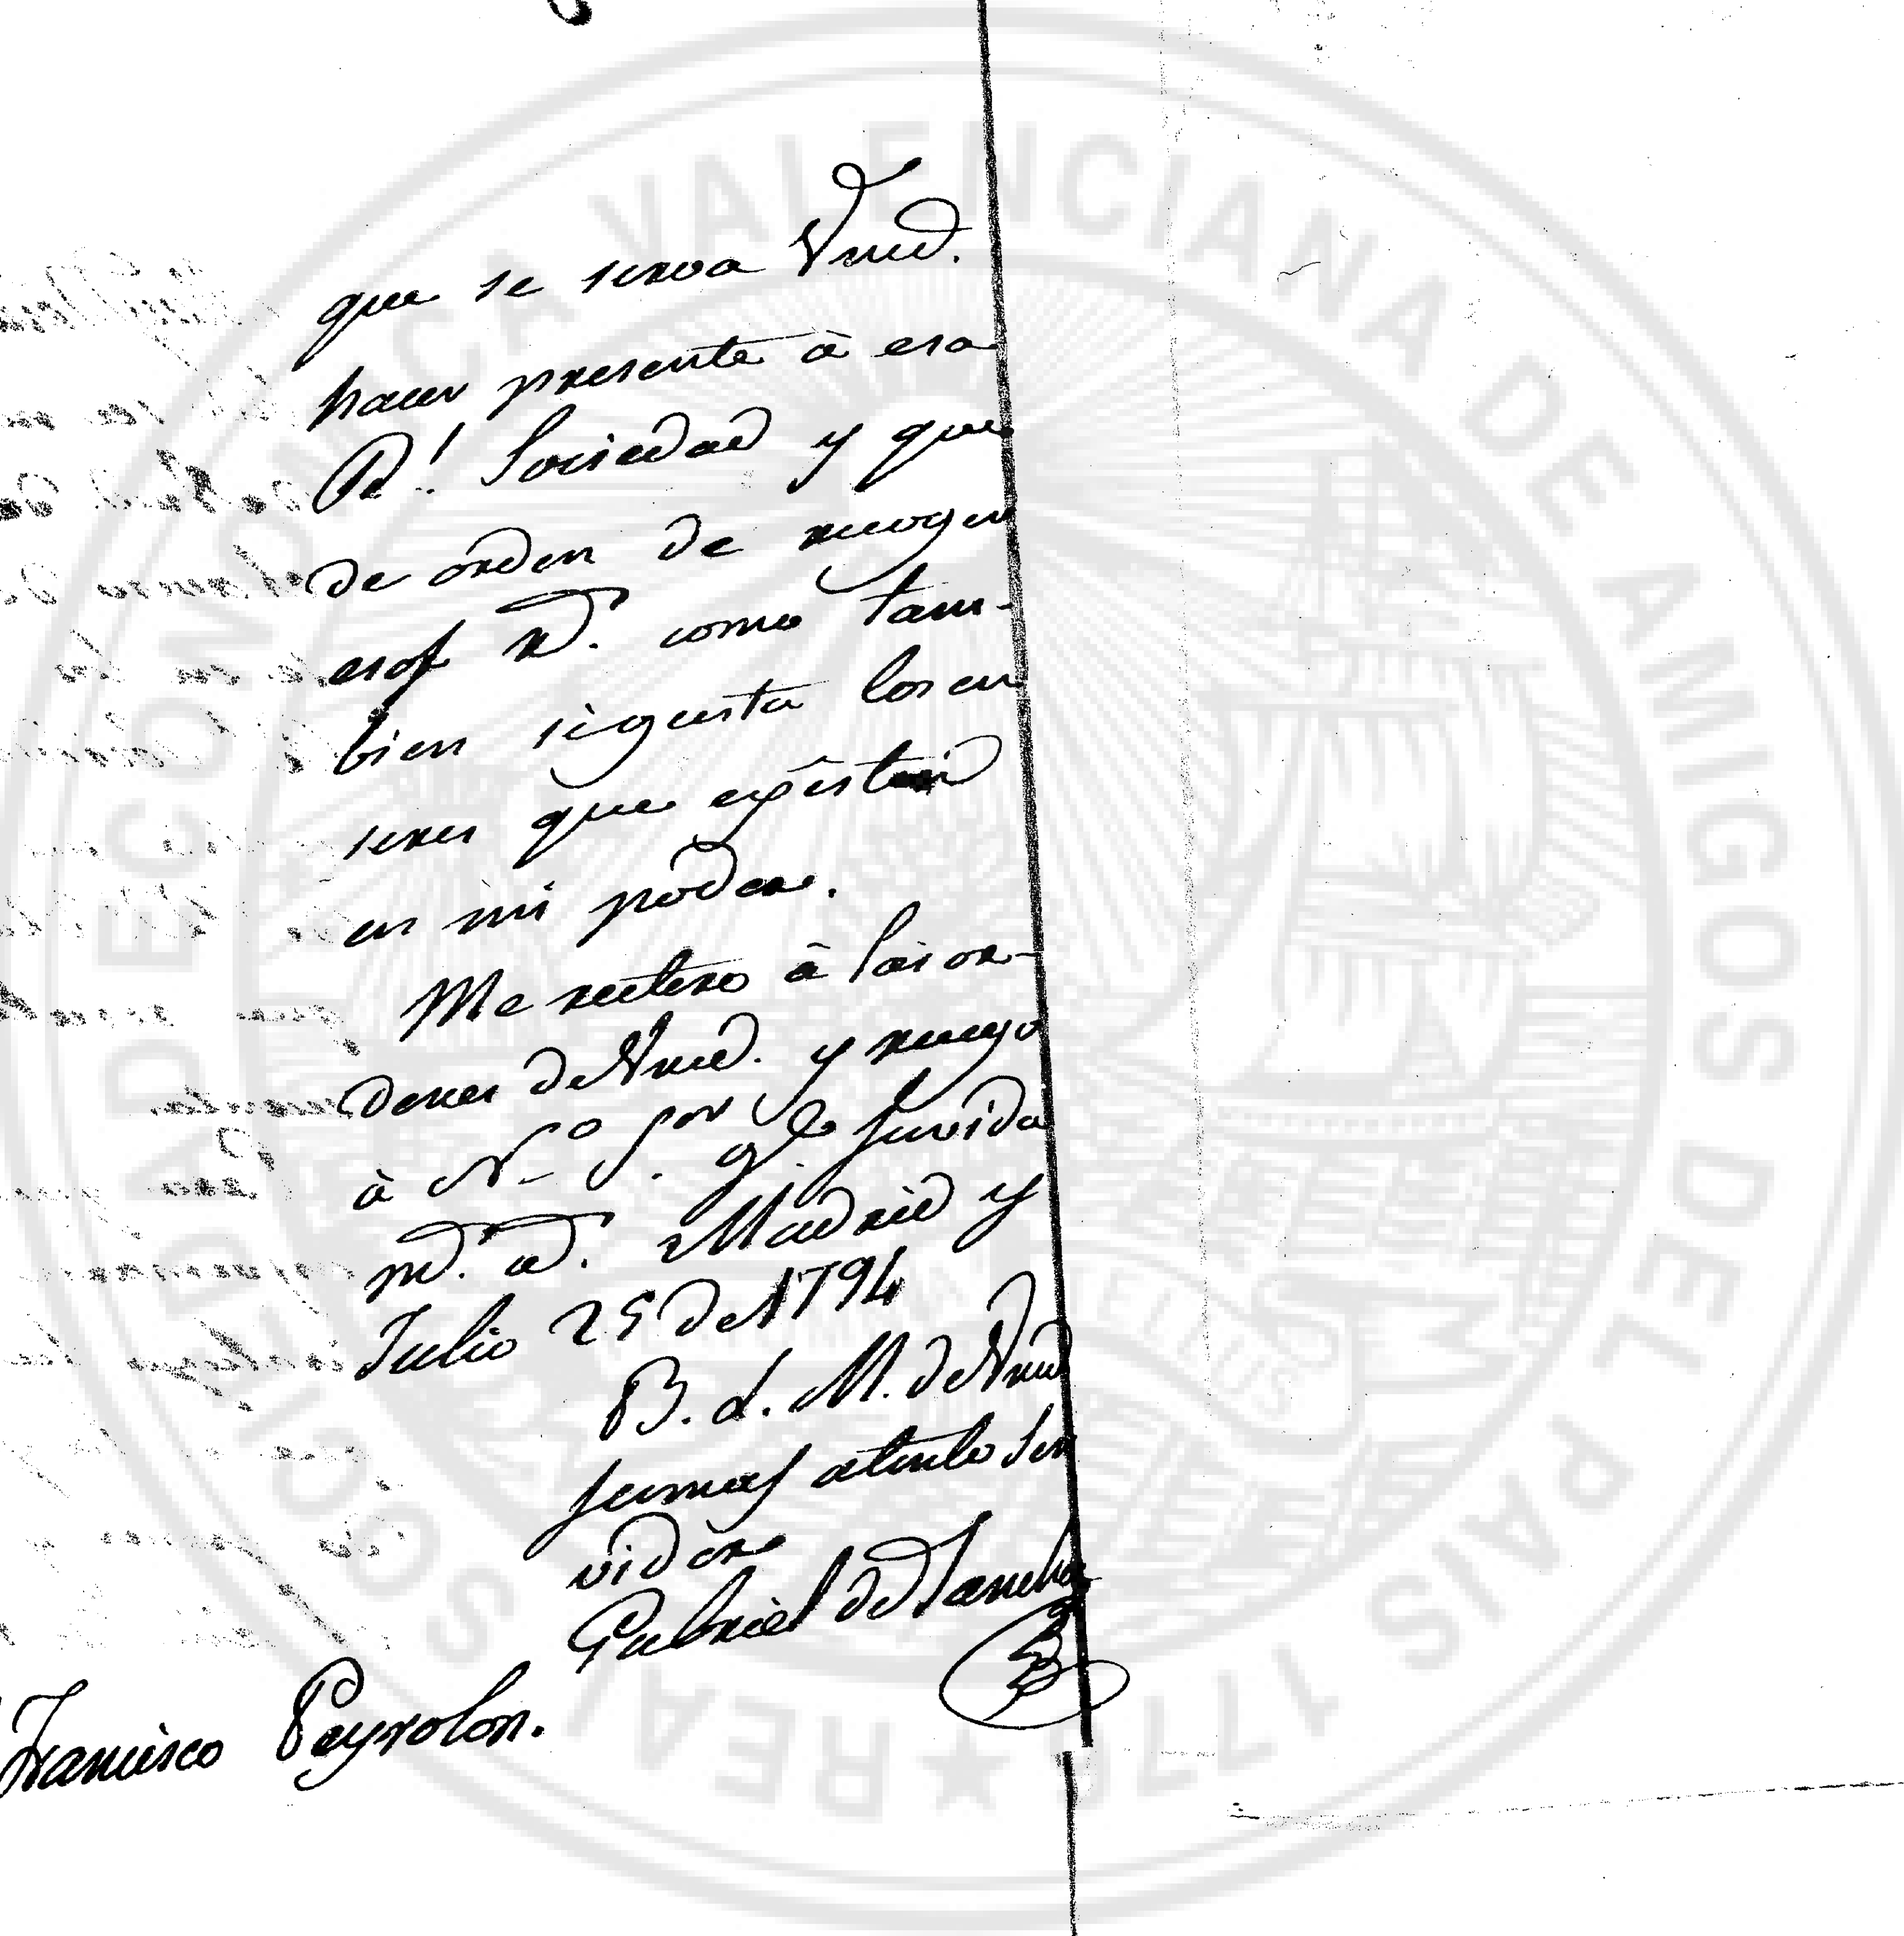 que se serva Vmd.
hacer presente à esa
Rl. Sociedad y que
de orden de recoger
esos rd. como tam-
bien si gusta los en
seres que existen
en mi poder.
Me reitero à las or-
denes de Vmd. y ruego
à Nro. Sor. gue. su vida
ms. as. Madrid y
Julio 25 de 1794
B. L. M. de Vmd
su mas atento ser
vidor
Gabriel de Sancha
Francisco Peyrolon.
REAL SOCIEDAD ECONOMICA VALENCIANA DE AMIGOS DEL PAIS
1776